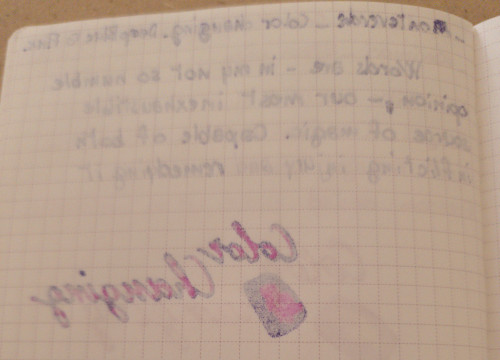 Monteverde - Color changing. Deep Blue to Pink.
Words are - in my not so humble
opinion -, our most inexhaustible
source of magic. Capable of both
inflicting injury and remedying it
Color
Changing